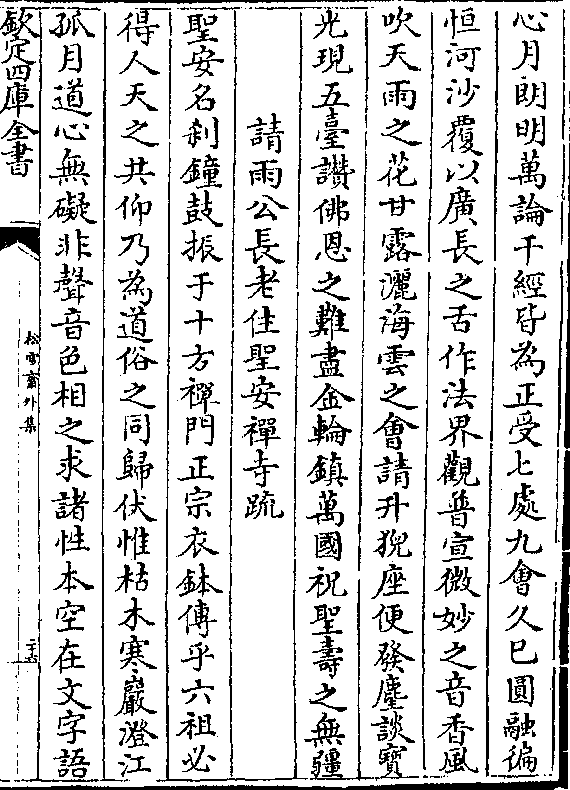 心月朗明萬論千經皆為正受七處九會久已圓融徧
恒河沙覆以廣長之舌作法界觀普宣微妙之音香風
吹天雨之花甘露灑海雲之會請升猊座便發麈談寶
光現五臺讚佛恩之難盡金輪鎮萬國祝聖壽之無疆
請雨公長老住聖安禪寺疏
聖安名刹鐘鼓振于十方禪門正宗衣鉢傳乎六祖必
得人天之共仰乃為道俗之同歸伏惟枯木寒巖澄江
孤月道心無礙非聲音色相之求諸性本空在文字語
欽定四庫全書
松雪齋外集
二十六